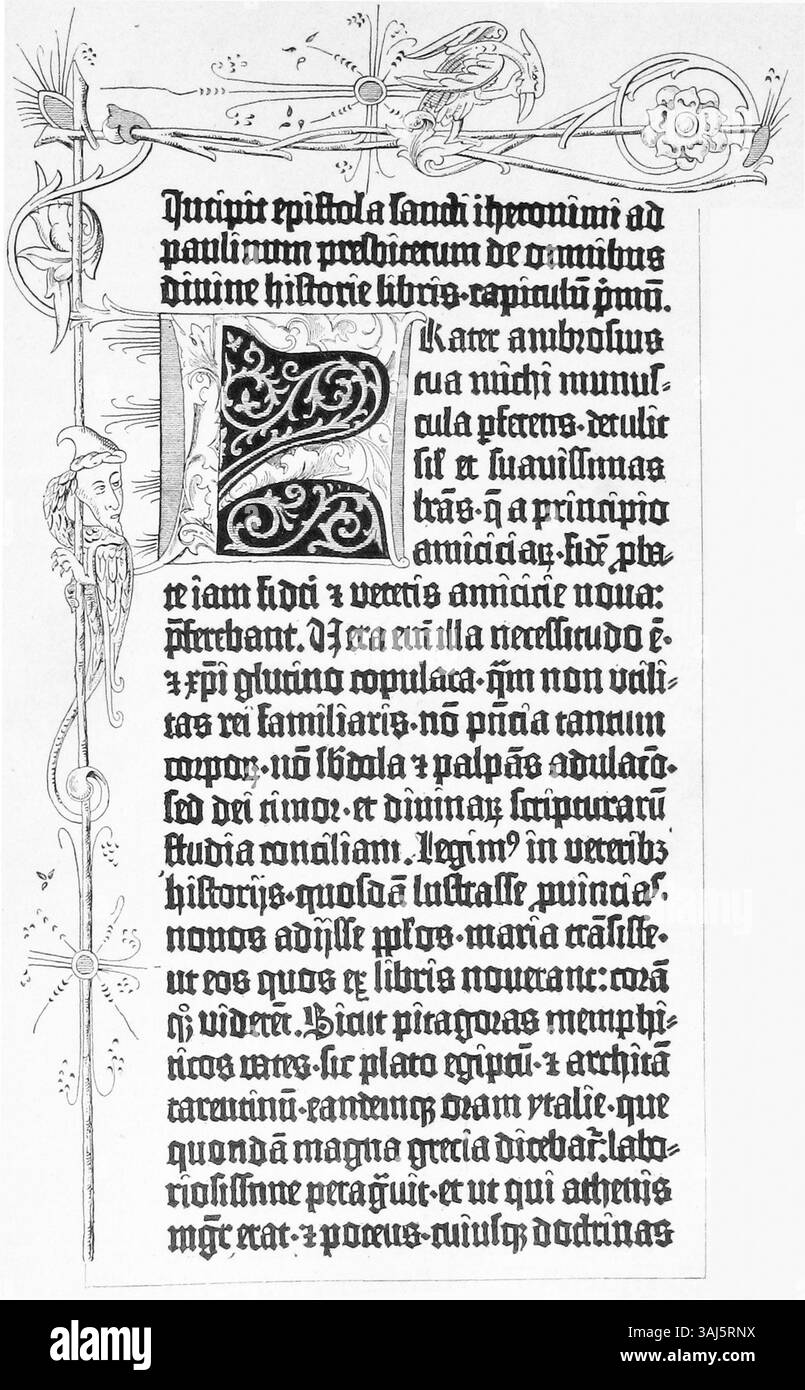 Incipit epistola sancti iheronimi ad
paulinum presbiterum de omnibus
divine historie libris·capitulū p̄mū.
Frater ambrosius
tua michi munus-
cula ꝑferens·detulit
sil̄ et suavissimas
lr̄as·q̄ a principio
amiciciaꝝ·fidē ꝓba-
te iam fidei ⁊ veteris amicicie nova:
p̄ferebant. Vera em̄ illa necessitudo ē·
⁊ xp̄i glutino copulata·qm̄ non utili-
tas rei familiaris·nō p̄ncia tantum
corpoꝝ·nō sb̄dola ⁊ palpās adulacō·
sed dei timor·et divinaꝝ scripturarū
studia conciliant. Legimꝰ in veteribꝫ
historijs·quosdā lustrasse ꝓvincias·
novos adijsse pp̄los·maria trāsisse·
ut eos quos ex libris noverant: corā
qꝫ viderēt. Sicut pitagoras memphi-
ticos vates·sic plato egiptū·⁊ architā
tarentinū·eandemqꝫ oram ytalie·que
quondā magna grecia dicebat᷑: labo-
riosissime peragͣvit·et ut qui athenis
mgr̄ erat·⁊ potens·cuiusqꝫ doctrinas
alamy
Image ID: 3AJ5RNX
www.alamy.com